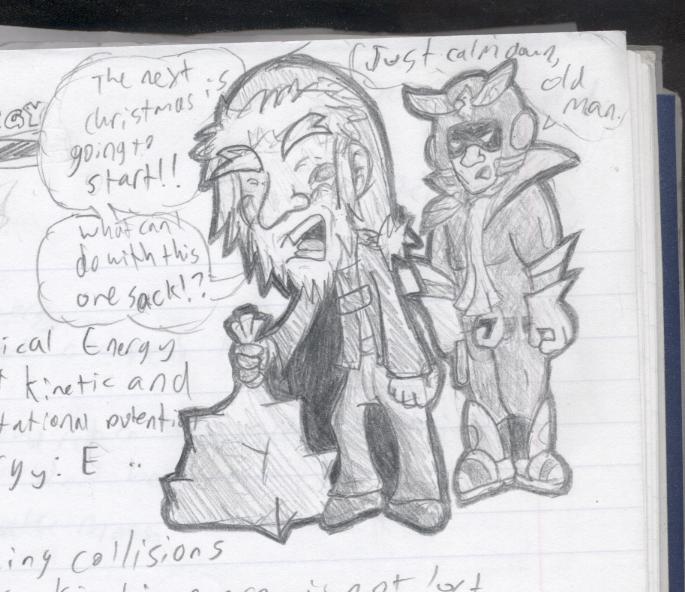 The next
christmas is
going to
start!!
what can I
do with this
one sack!?
Just calm down,
old
man.
ical Energy
kinetic and
tational potenti
rgy: E ..
ing collisions
is not lost